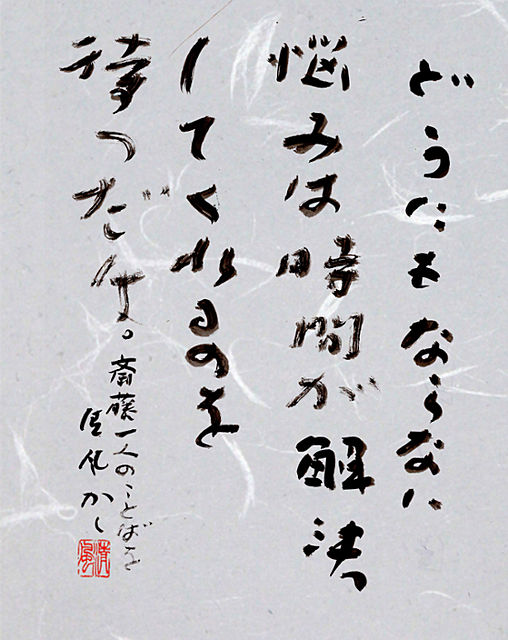 どうにもならない
悩みは時間が解決
してくれるのを
待つだけ。
斎藤一人のことばを
清風かく
清風